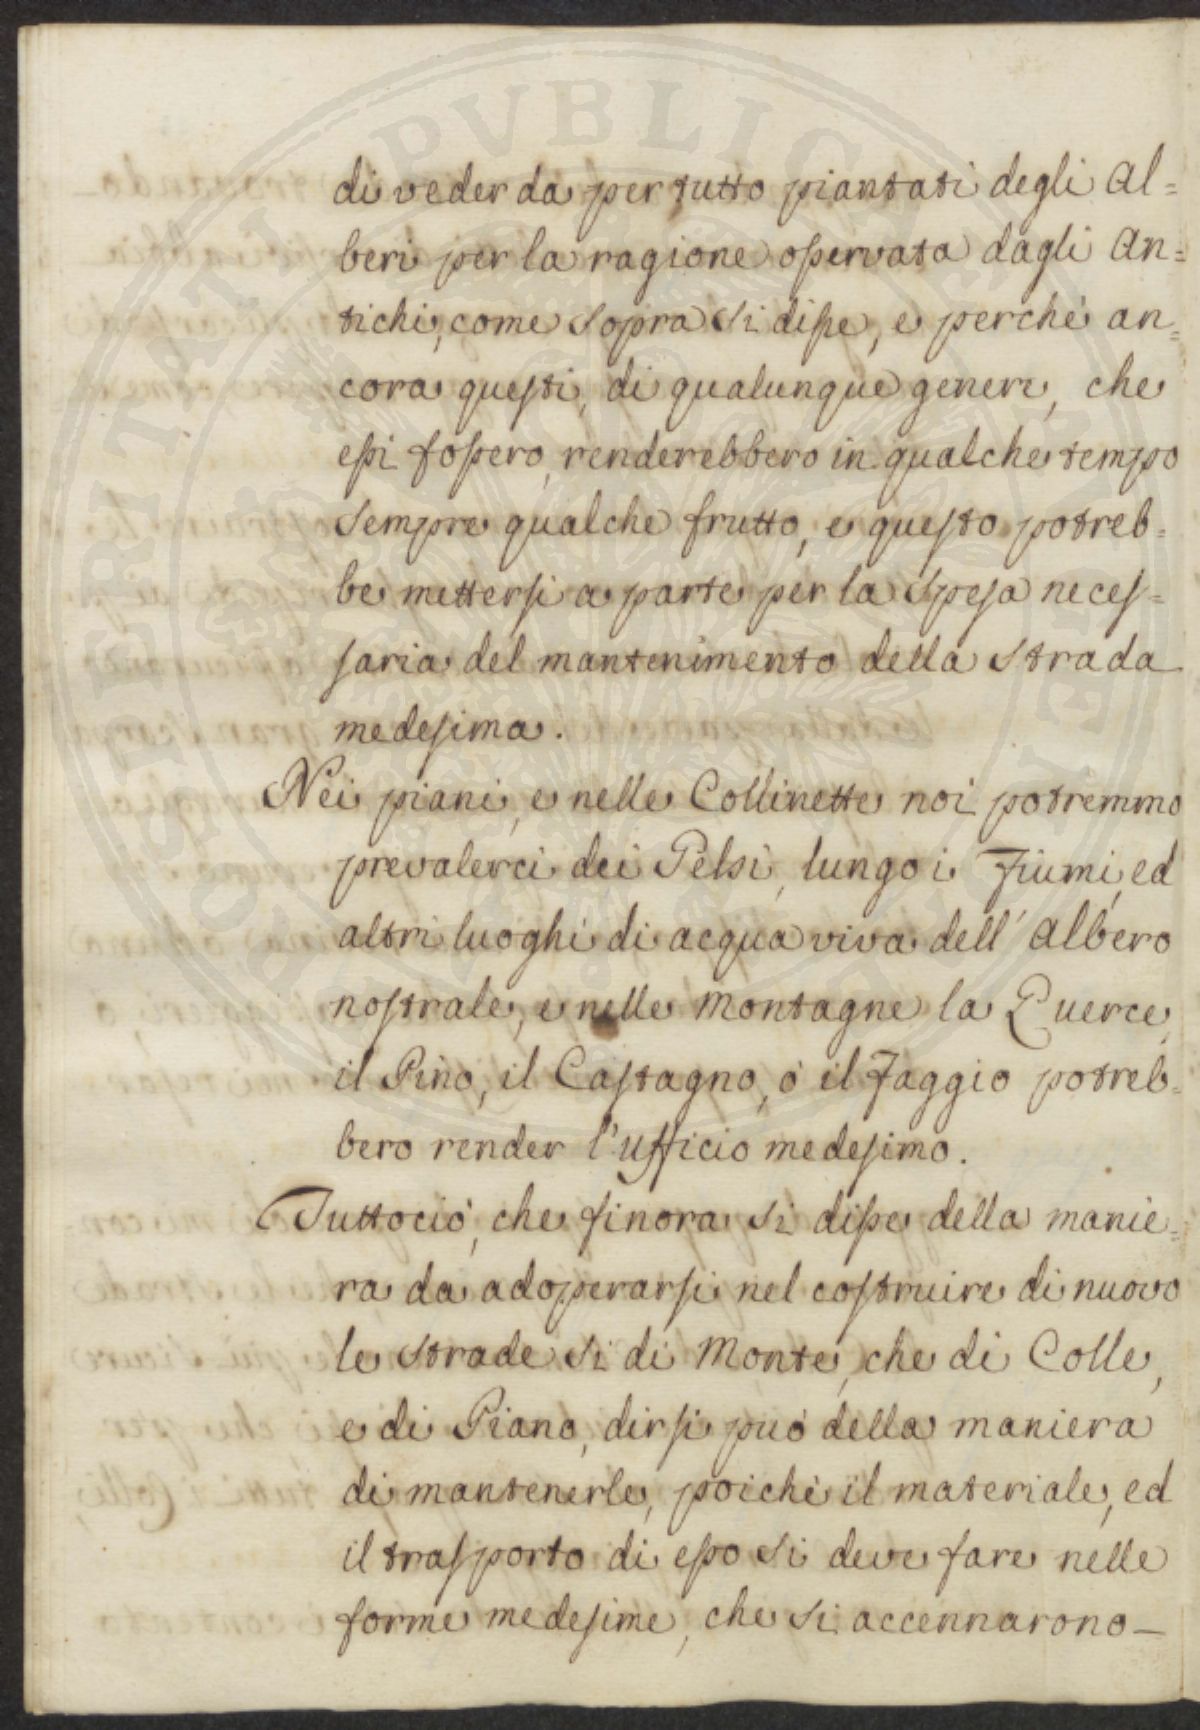 di veder da per tutto piantati degli Al=
beri per la ragione osservata dagli An=
tichi, come sopra si disse, e perchè an=
cora questi, di qualunque genere, che
essi fossero, renderebbero in qualche tempo
sempre qualche frutto, e questo potreb=
be mettersi a parte per la spesa neces=
saria del mantenimento della strada
medesima.
Nei piani, e nelle Collinette noi potremmo
prevalerci dei Pelsi, lungo i Fiumi, ed
altri luoghi di acqua viva dell' Albero
nostrale, e nelle Montagne la Querce,
il Pino, il Castagno, ó il Faggio potreb=
bero render l'ufficio medesimo.
Tuttociò, che finora si disse della manie=
ra da adoperarsi nel costruire di nuovo
le strade si di Monte, che di Colle,
e di Piano, dirsi può della maniera
di mantenerle, poichè il materiale, ed
il trasporto di esso si deve fare nelle
forme medesime, che si accennarono —